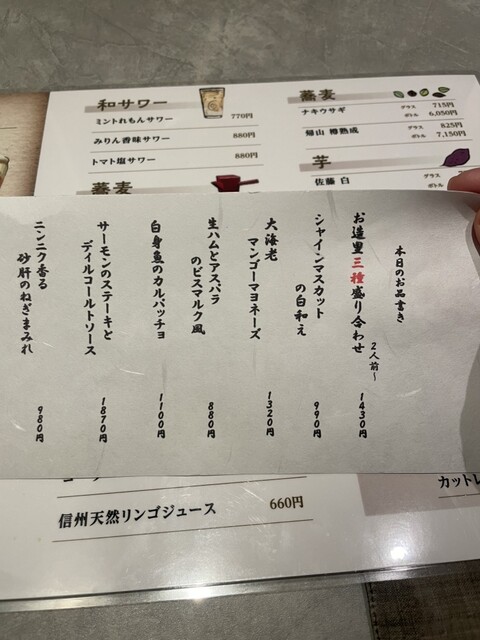 和サワー
ミントれもんサワー 770円
みりん香味サワー 880円
トマト塩サワー 880円
蕎麦
蕎麦
ナキウサギ グラス 715円
ボトル 6,050円
帰山 樽熟成 グラス 825円
ボトル 7,150円
芋
佐藤 白 グラス
ボトル
本日のお品書き
お造里三種盛り合わせ 2人前~ 1430円
シャインマスカット
の白和え 990円
大海老
マンゴーマヨネーズ 1320円
生ハムとアスパラ
のビスマルク風 880円
白身魚のカルパッチョ 1100円
サーモンのステーキと
ディルコールトソース 1870円
ニンニク香る
砂肝のねぎまみれ 980円
信州天然リンゴジュース 660円
カットレ